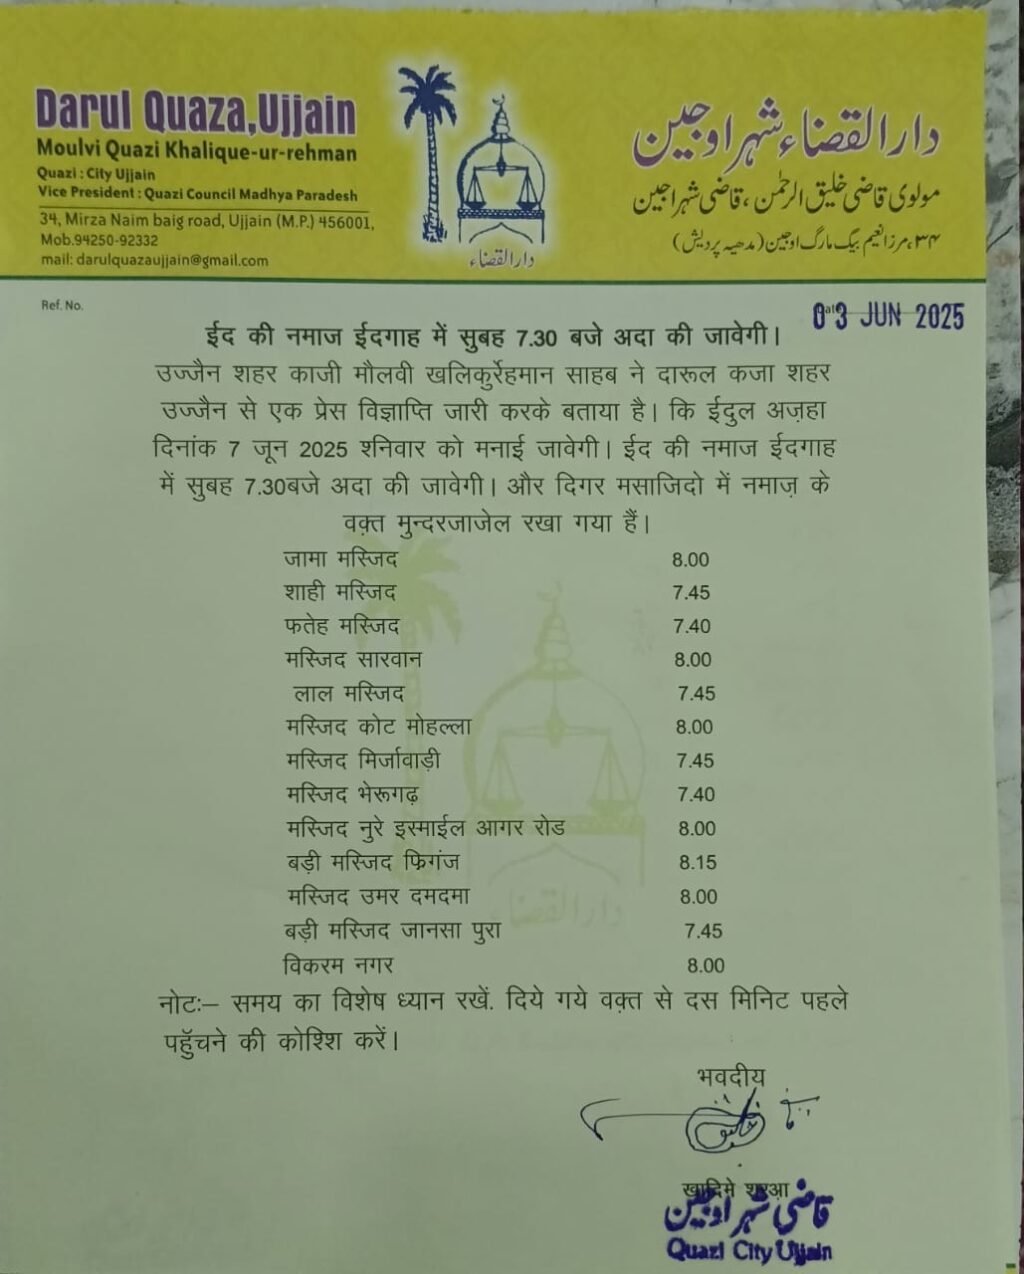 Darul Quaza,Ujjain
Moulvi Quazi Khalique-ur-rehman
Quazi : City Ujjain
Vice President : Quazi Council Madhya Paradesh
34, Mirza Naim baig road, Ujjain (M.P.) 456001,
Mob.94250-92332
mail: darulquazaujjain@gmail.com
دارالقضاء
دارالقضاء شہر اوجین
مولوی قاضی خلیق الرحمٰن ، قاضی شہر اجین
۳۴ ،مرزا نعیم بیگ مارگ اوجین (مدھیہ پردیش)
Ref. No.
0 3 JUN 2025
ईद की नमाज ईदगाह में सुबह 7.30 बजे अदा की जावेगी।
उज्जैन शहर काजी मौलवी खलिकुर्रेहमान साहब ने दारूल कजा शहर
उज्जैन से एक प्रेस विज्ञाप्ति जारी करके बताया है। कि ईदुल अज़हा
दिनांक 7 जून 2025 शनिवार को मनाई जावेगी। ईद की नमाज ईदगाह
में सुबह 7.30बजे अदा की जावेगी। और दिगर मसाजिदो में नमाज़ के
वक़्त मुन्दरजाजेल रखा गया हैं।
जामा मस्जिद 8.00
शाही मस्जिद 7.45
फतेह मस्जिद 7.40
मस्जिद सारवान 8.00
लाल मस्जिद 7.45
मस्जिद कोट मोहल्ला 8.00
मस्जिद मिर्जावाड़ी 7.45
मस्जिद भेरूगढ़ 7.40
मस्जिद नुरे इस्माईल आगर रोड 8.00
बड़ी मस्जिद फ्रिगंज 8.15
मस्जिद उमर दमदमा 8.00
बड़ी मस्जिद जानसा पुरा 7.45
विकरम नगर 8.00
दारالقضاء
नोटः– समय का विशेष ध्यान रखें. दिये गये वक़्त से दस मिनिट पहले
पहुॅचने की कोश्शि करें।
भवदीय
खादिमे शरआ
قاضی شہر اوجین
Quazi City Ujjain